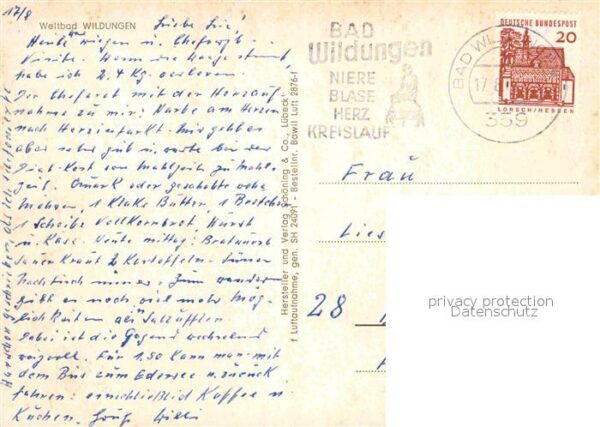 17/8
Weltbad WILDUNGEN
Liebe
Heute wiegen u. Chefarzt-
Visite. Wenn die Waage stimmt
habe ich 2,4 Kg. verloren.
Der Chefarzt mit der Herzauf-
nahme zu mir: Narbe am Herzen
nach Herzinfarkt. Mir geht es
aber sehr gut u. warte bei der
Diät-Kost von Mahlzeit zu Mahl-
zeit. Quark oder geschabte rohe
Möhren, 1 Klaks Butter, 1
1 Scheibe Vollkornbrot, Wurst
u. Käse. Heute mittag: Bratwurst
Sauerkraut 2 Kartoffeln.
Nachtisch immer. Zum wandern
gibt es noch viel mehr Mög-
lichkeiten als Salzuflen.
Dabei ist die Gegend wechselnd
reizvoll. Für 1,50 kann man mit
dem Bus zum Edersee u. zurück
fahren: einschließlich Kaffee u.
Kuchen. Gruß Willi
Hersteller und Verlag Schöning & Co., Lübeck
Luftaufnahme, gen. SH 24091 - Bestellnr. Bawil Luft 2876-f
BAD
Wildungen
NIERE
BLASE
HERZ
KREISLAUF
BAD WIL
17.
359
DEUTSCHE BUNDESPOST
20
LORSCH/HESSEN
Frau
28
privacy protection
Datenschutz